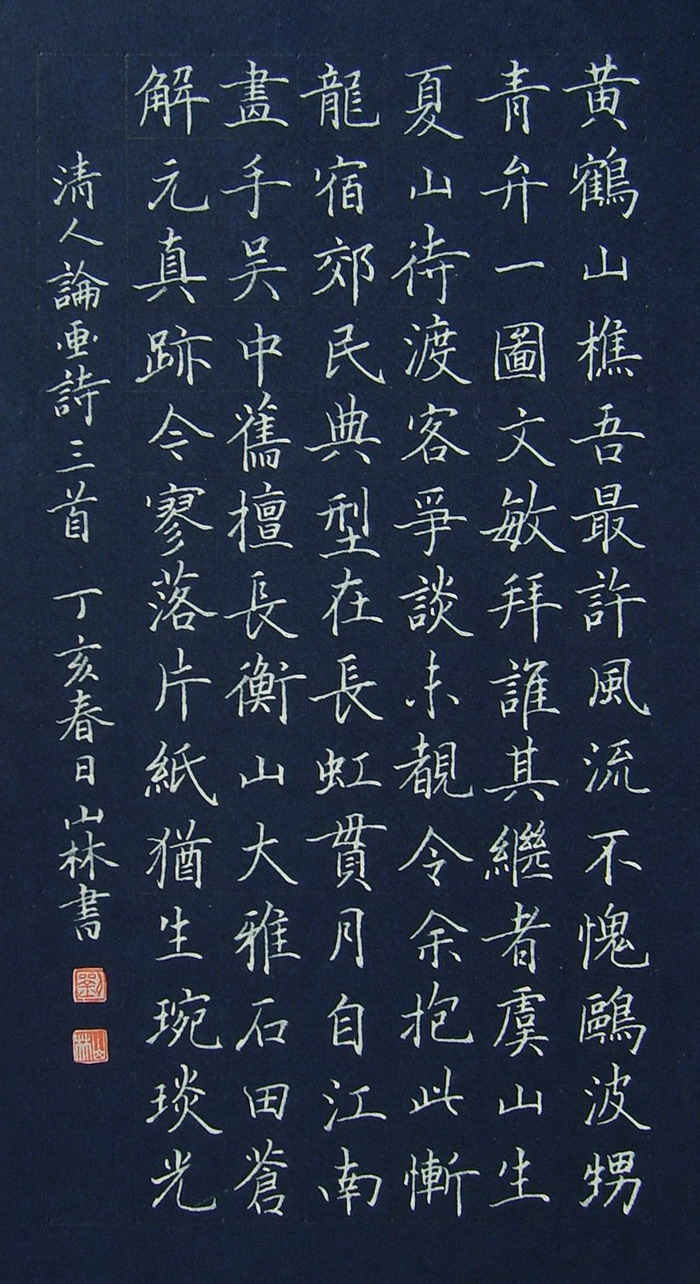 黄鶴山樵吾最許風流不愧鷗波甥
青弁一圖文敏拜誰其繼者虞山生
夏山待渡客爭談未覩令余抱此慚
龍宿郊民典型在長虹貫月自江南
畫手吴中舊擅長衡山大雅石田蒼
解元真跡今寥落片紙猶生琬琰光
清人論画詩三首 丁亥春日山林書
劉
山林